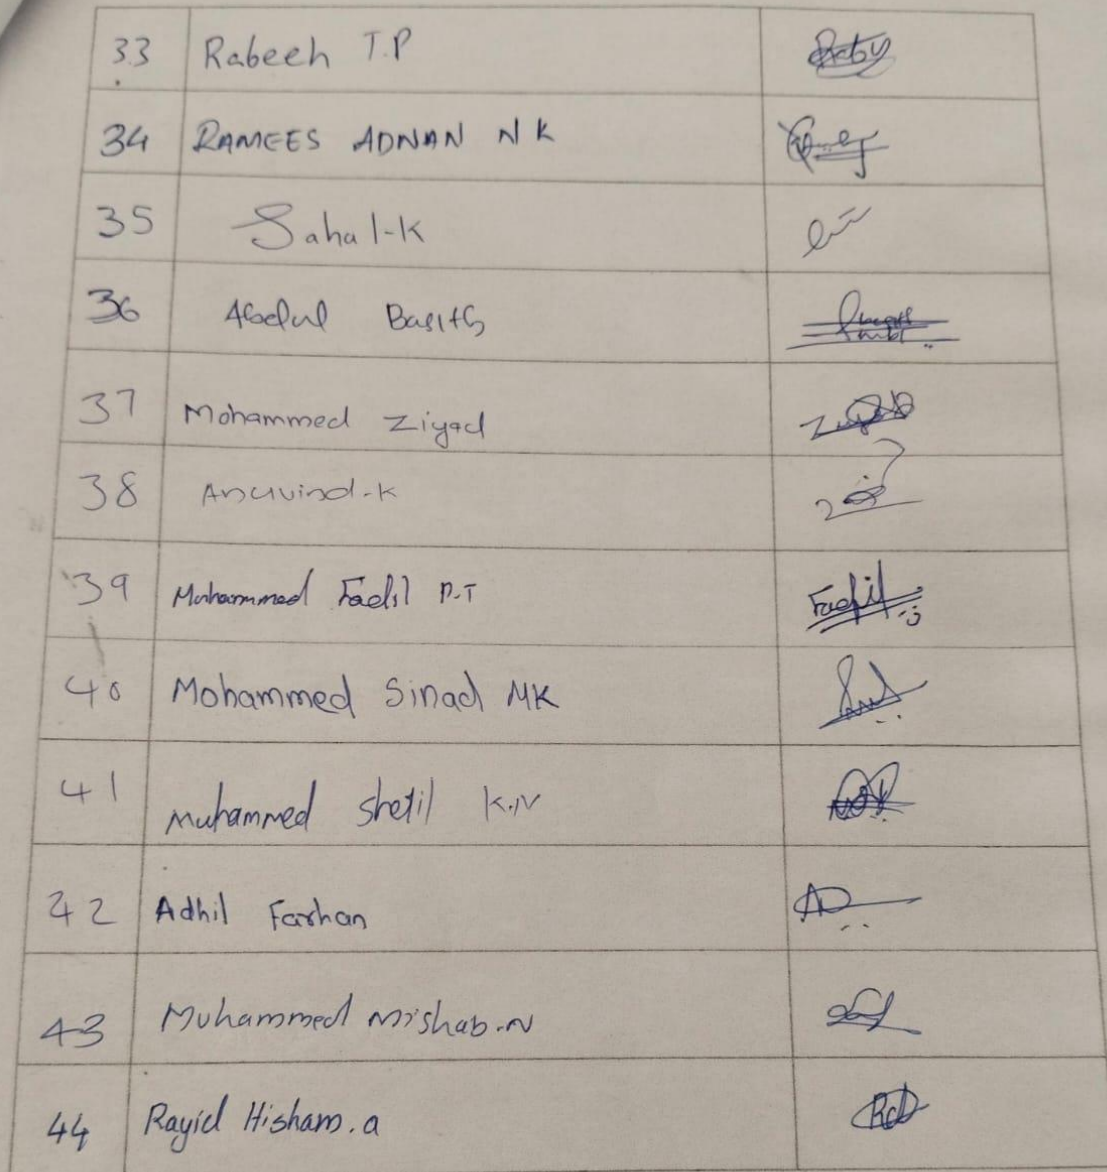 33 Rabeeh T.P
34 RAMEES ADNAN N K
35 Sahal-K
36 Abdul Basith
37 Mohammed Ziyad
38 Aravind-K
39 Mohammed Fadil P.T Fadil
40 Mohammed Sinad MK
41 Muhammed Shefil K.V
42 Adhil Farhan
43 Muhammed Mishab.N
44 Rayid Hisham.a